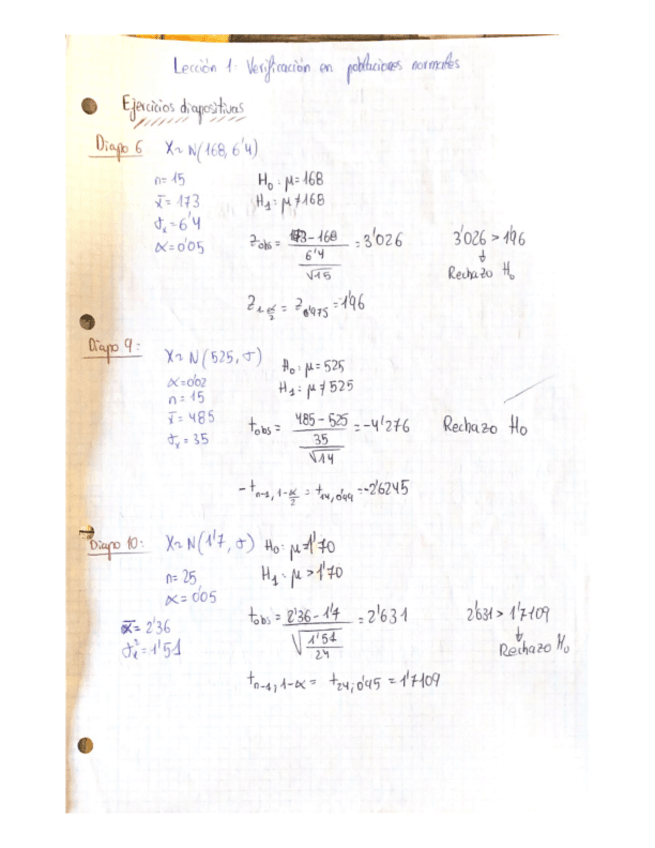 Lección 1: Verificación en poblaciones normales
Ejercicios diapositivas
Diapo 6 X~N(168, 6'4)
n=15 H₀: μ=168
x̄=173 H₁: μ≠168
σₓ=6'4
α=0'05
z_obs = (173-168)/(6'4/√15) = 3'026 3'026 > 1'96
↓
Rechazo H₀
z_{1-α/2} = z_{0'975} = 1'96
Diapo 9: X~N(525, σ)
α=0'02 H₀: μ=525
n=15 H₁: μ≠525
x̄=485
σₓ=35
t_obs = (485-525)/(35/√14) = -4'276 Rechazo H₀
-t_{n-1, 1-α/2} = t_{14, 0'99} = -2'6245
Diapo 10: X~N(1'7, σ) H₀: μ=1'70
n=25 H₁: μ>1'70
α=0'05
x̄=2'36
σₓ²=1'51
t_obs = (2'36-1'7)/√(1'51/24) = 2'631 2'631 > 1'7109
↓
Rechazo H₀
t_{n-1, 1-α} = t_{24, 0'95} = 1'7109